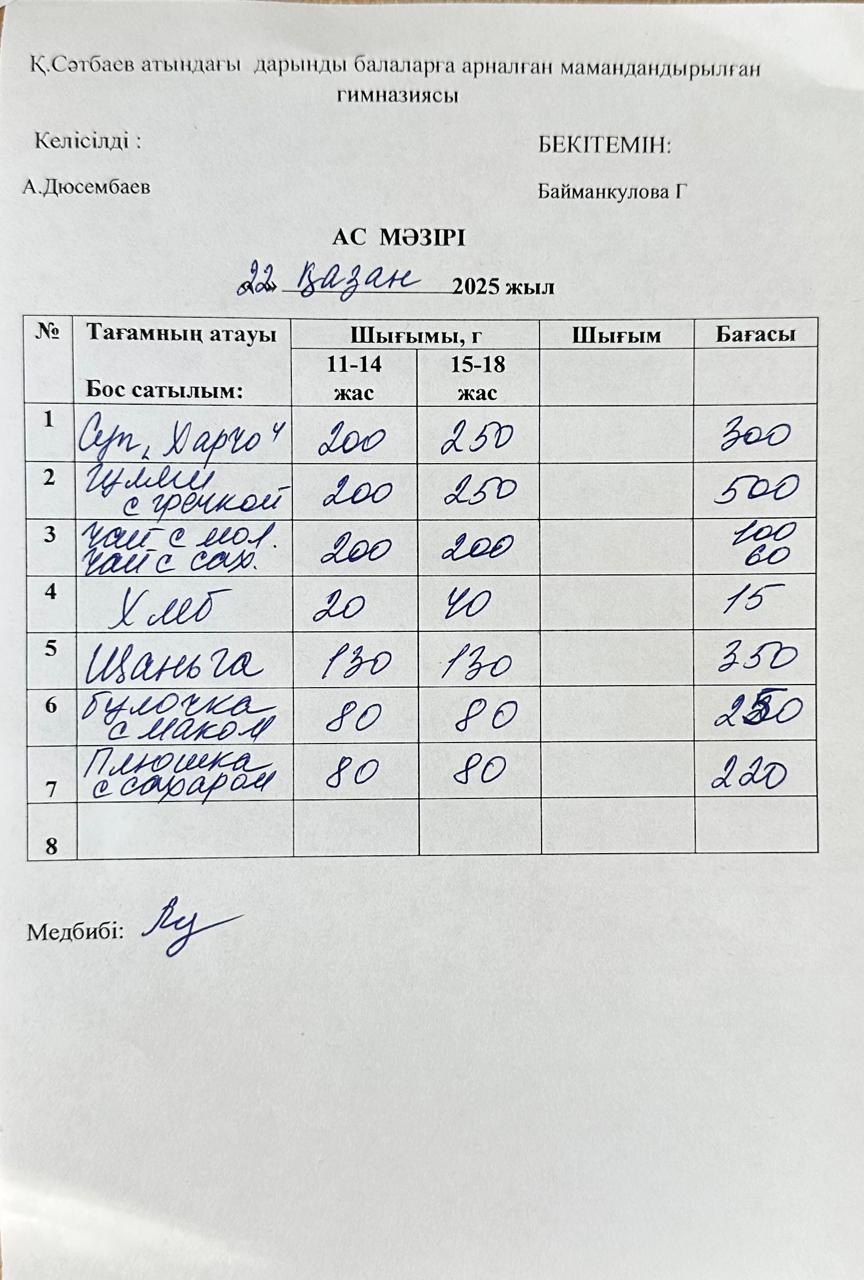 Қ.Сәтбаев атындағы дарынды балаларға арналған мамандандырылған
гимназиясы
Келісілді : БЕКІТЕМІН:
А.Дюсембаев Байманкулова Г
АС МӘЗІРІ
22 қазан 2025 жыл
№ Тағамның атауы Шығымы, г Шығым Бағасы
Бос сатылым: 11-14 жас 15-18 жас
1 Суп „Харчо“ 200 250 300
2 Гуляш
с гречкой 200 250 500
3 Чай с мол. 100
Чай с сах. 200 200 60
4 Хлеб 20 40 15
5 Шаньга 130 130 350
6 Булочка
с маком 80 80 250
7 Плюшка
с сахаром 80 80 220
8
Медбибі: